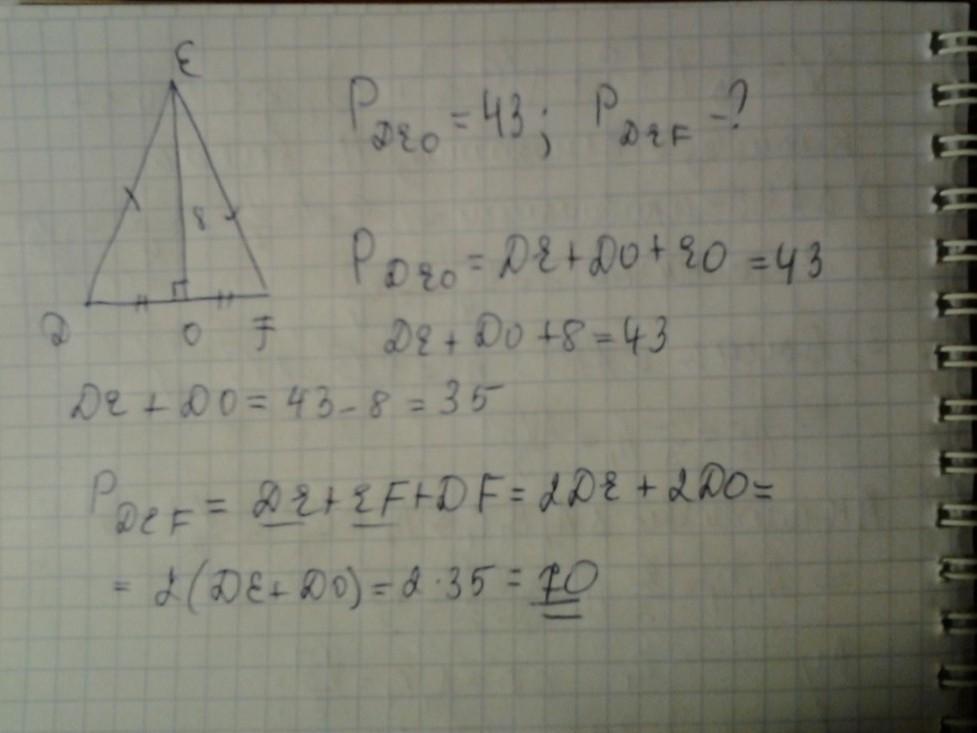 E
P DEO = 43; P DEF - ?
8
P DEO = DE + DO + EO = 43
D O F
DE + DO + 8 = 43
DE + DO = 43 - 8 = 35
P DEF = DE + EF + DF = 2DE + 2DO =
= 2(DE + DO) = 2 · 35 = 70